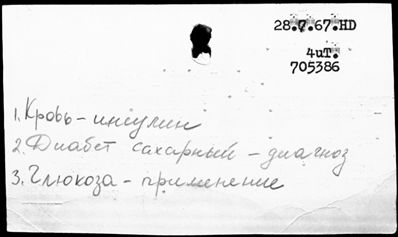 28.7.67.HD
4иТ.
705386
1. Кровь – инсулин
2. Диабет сахарный – диагноз
3. Глюкоза – применение